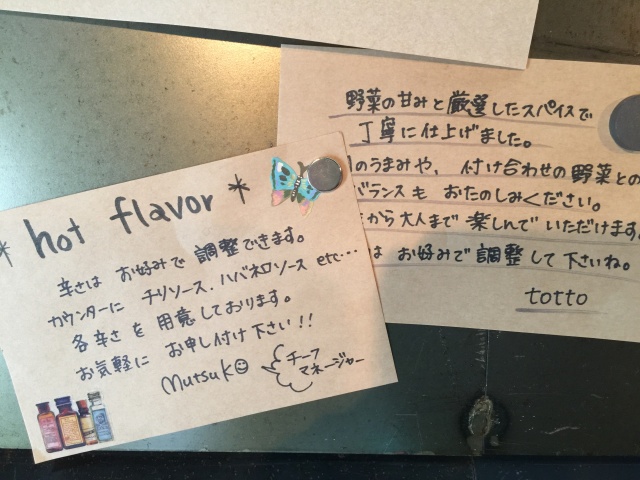 * hot flavor *
辛さは お好みで 調整できます。
カウンターに チリソース・ハバネロソース etc…
各辛さ を 用意しております。
お気軽に お申し付け下さい!!
mutsuko
チーフ
マネージャー
野菜の甘みと厳選したスパイスで
丁寧に仕上げました。
のうまみや、付け合わせの野菜との
バランスも おたのしみください。
から大人まで楽しんでいただけます
は お好みで調整して下さいね。
totto